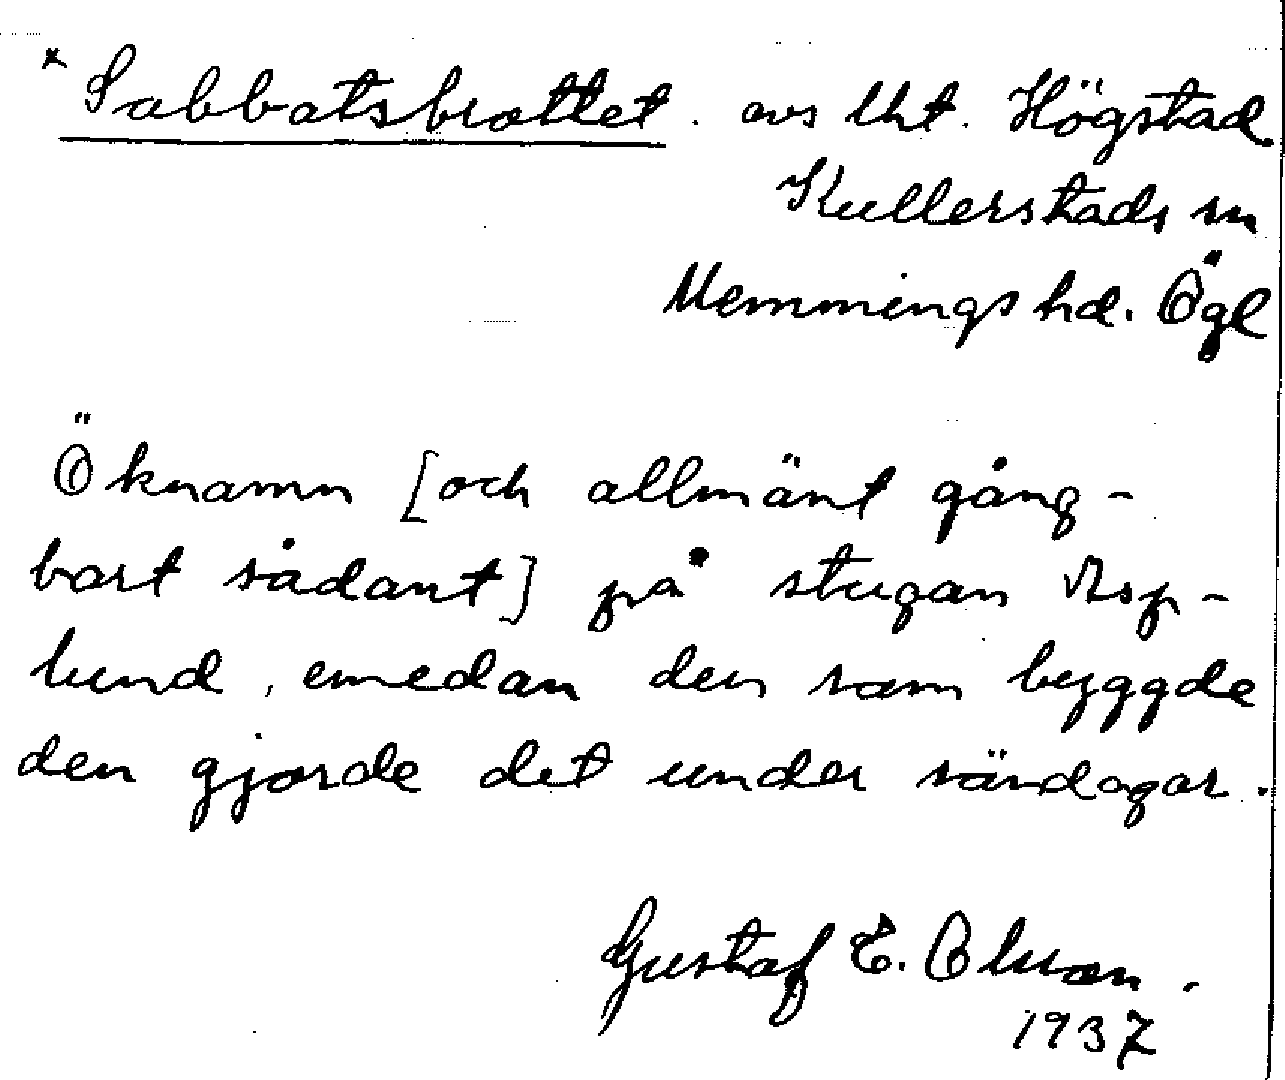 * Sabbatsbrottet. avs lht. Högstad.
Kullerstads sn
Memmings hd. Ögl
Öknamn [och allmänt gång-
bart sådant] på stugan Asp-
lund, emedan den som byggde
den gjorde det under söndagar.
Gustaf E. Olsson.
1937